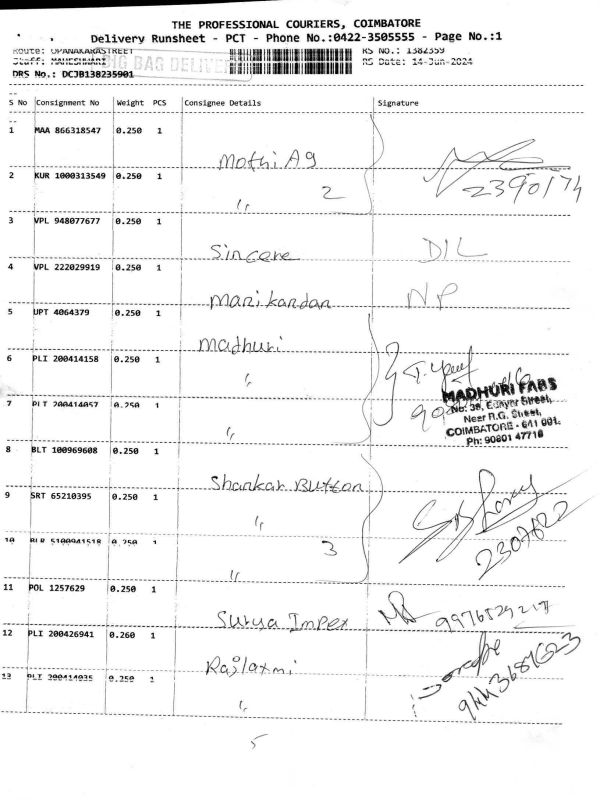 THE PROFESSIONAL COURIERS, COIMBATORE
Delivery Runsheet - PCT - Phone No.:0422-3505555 - Page No.:1
Route: UPANAKARASTREET RS No.: 1382359
Staff: MAHESHWARI BIG BAG DELIVE RS Date: 14-Jun-2024
DRS No.: DCJB138235901
S No Consignment No Weight PCS Consignee Details Signature
1 MAA 866318547 0.250 1 Mothi Ag
2 KUR 1000313549 0.250 1 " 2 2390174
3 VPL 948077677 0.250 1 Sincere D/L
4 VPL 222029919 0.250 1 Manikandan NP
5 UPT 4064379 0.250 1 Madhuri
6 PLI 200414158 0.250 1 "
MADHURI FABS
No: 38, Street,
Near R.G. Street,
COIMBATORE - 641 001.
Ph: 90801 47718
7 PLI 200414057 0.250 1 "
8 BLT 100969608 0.250 1 Shankar Button
9 SRT 65210395 0.250 1 "
10 BLR 5100941518 0.250 1 " 3 2307622
11 POL 1257629 0.250 1 Surya Impex
12 PLI 200426941 0.260 1 Rajlaxmi
13 PLI 200414035 0.250 1 "
5